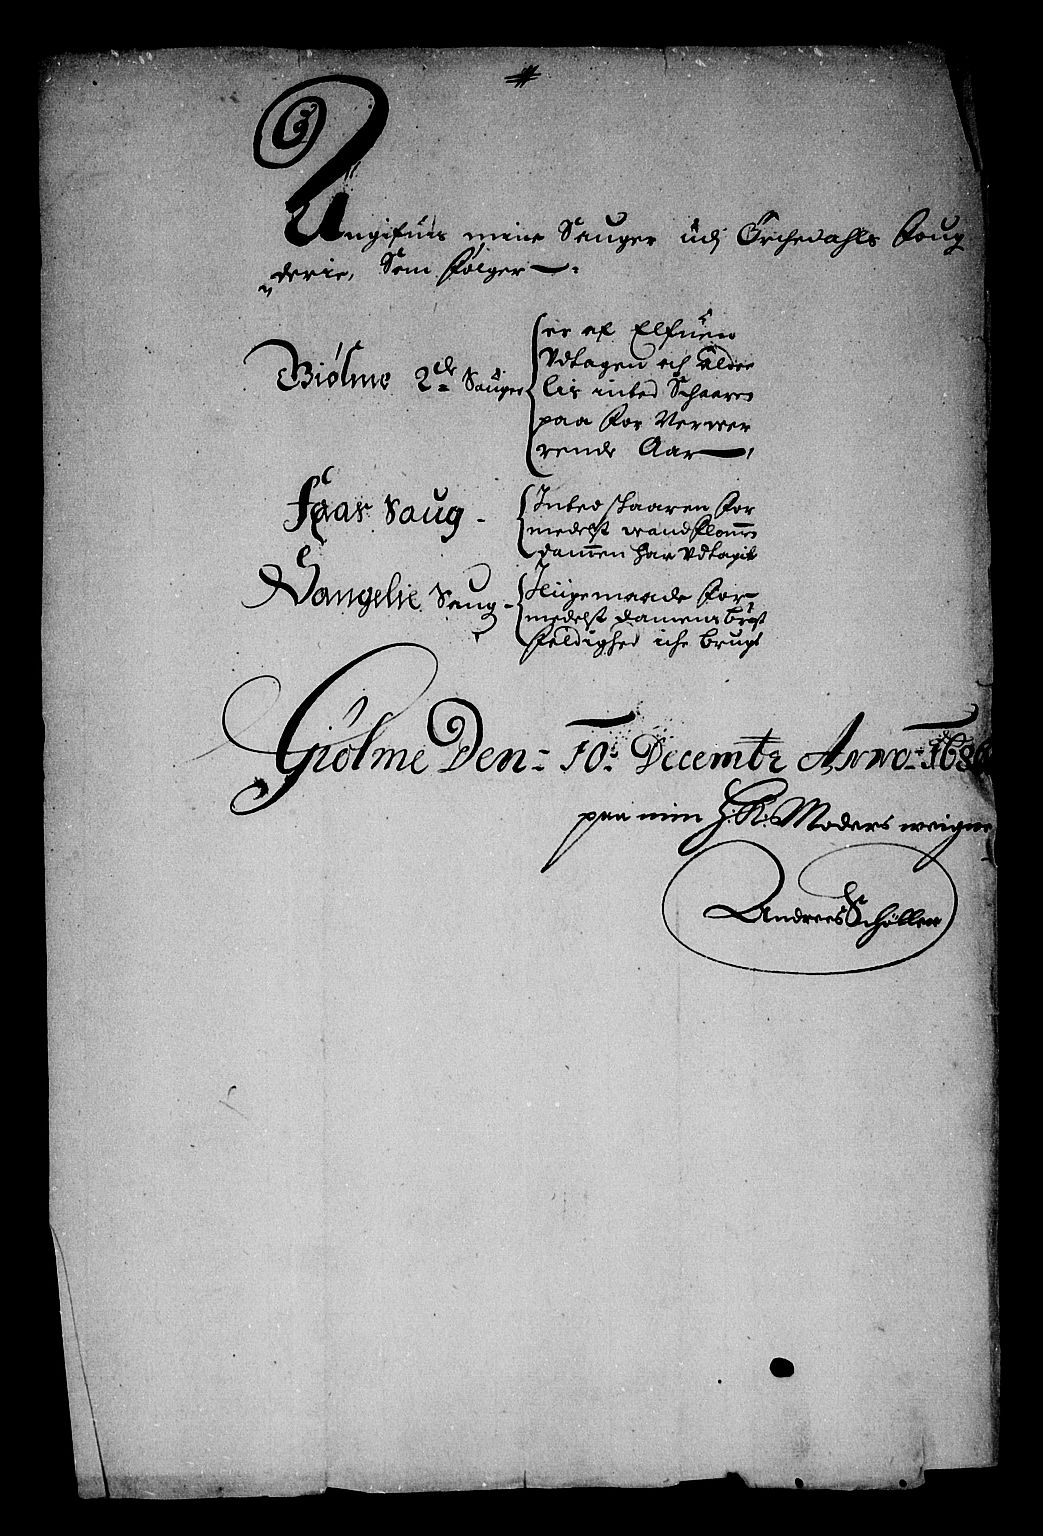 Angifuis mine Sauger udj Örchedahls Foug
derie, Som følger
Biølme 2de Sauger
er af Elfuen
Vdtagen och aldee
lis inted Schaaren
paa for Verwer
rende Aar
Faar Saug
Inted skaaren for
medelst wandflomen
damen har Vdtagit
Vangelie Saug
I liigemaade for
medelst damens brøst
feldighed iche brugt
Giølme Den 10 Decembr Anno 168
paa min H: K: Moders weigne
Andrees Schøller